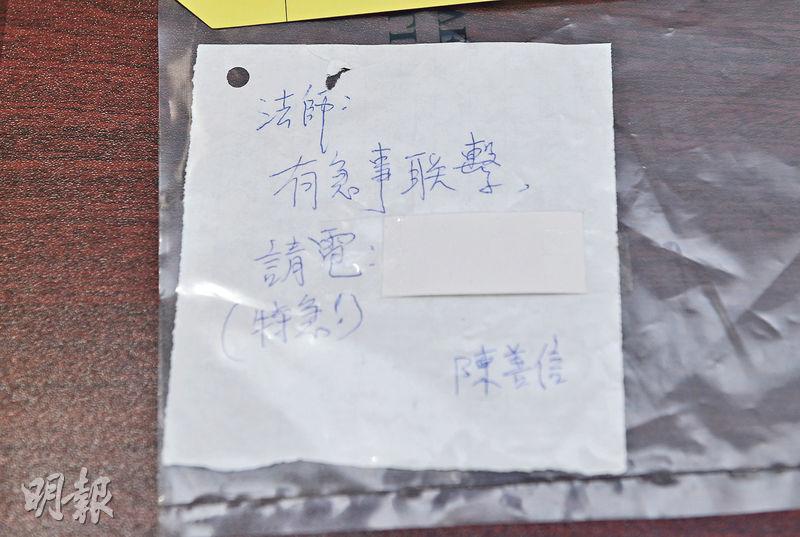 法師：
有急事联擊，
請電：
(特急!)
陳善信
明報